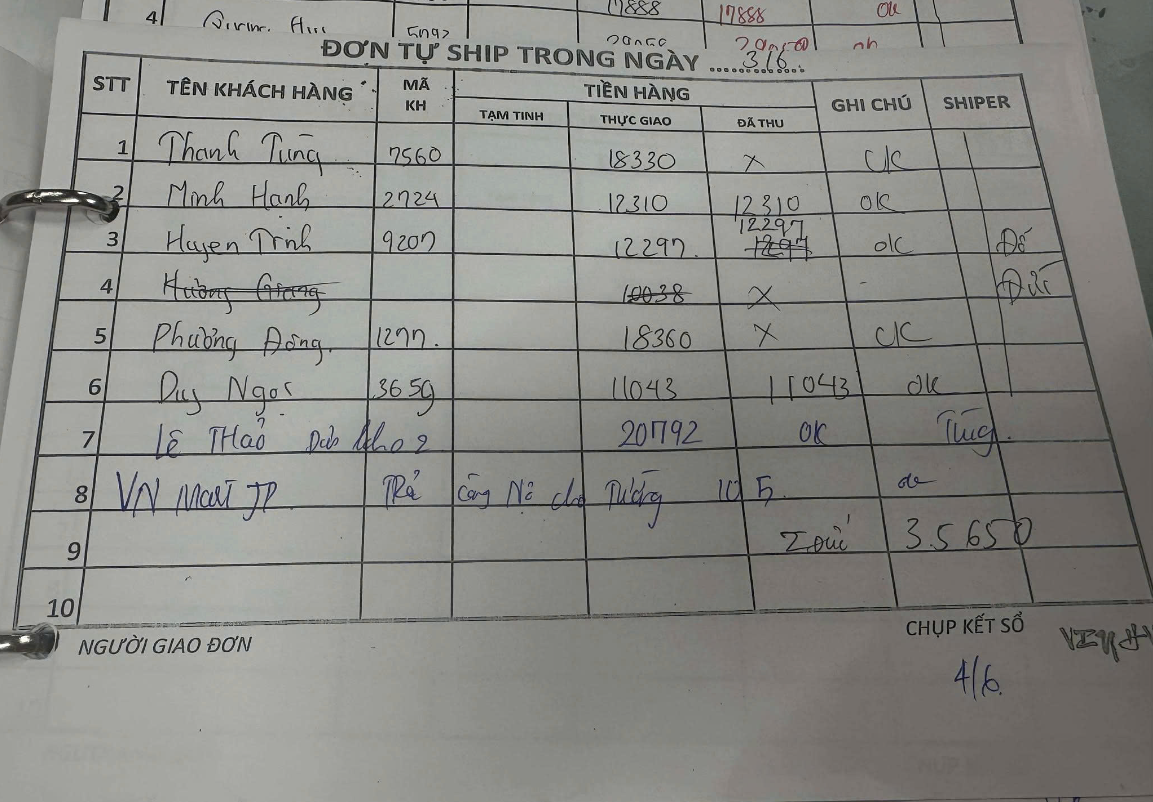 4 17888 17888 Ok
ĐƠN TỰ SHIP TRONG NGÀY ..... 3/6
STT TÊN KHÁCH HÀNG MÃ KH TIỀN HÀNG GHI CHÚ SHIPER
TẠM TINH THỰC GIAO ĐÃ THU
1 Thanh Tùng 7560 18330 x CK
2 Minh Hạnh 2724 12310 12310 ok
12297
3 Huyen Trinh 9207 12297. 1297 ok Đỗ
4 Hường Giang 10038 x - Đức
5 Phương Đông. 1277. 18360 x CK
6 Duy Ngọc 3659 11043 11043 ok
7 Lê THảo kho 2 20792 OK Tùng.
8 VN Mart JP TRả Công Nợ cho Tường 10 5. ok
9 Σ Đức 35650
10
NGƯỜI GIAO ĐƠN CHỤP KẾT SỔ
4/6.